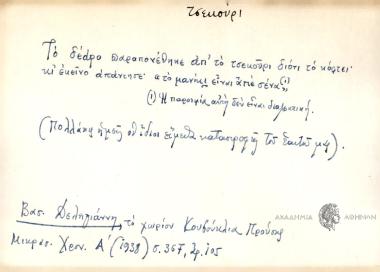 τσεκούρι
Τὸ δέδρο παραπονέθηκε ἀπ' τὸ τσεκοῦρι διότι τὸ κόφτει·
κι' ἐκεῖνο ἀπάντησε· ἀ τὸ μανίκι εἶναι ἀπὸ σένα (1)
(1) Ἡ παροιμία αὐτὴ δὲν εἶναι διαλεκτική.
(Πολλάκις ἡμεῖς οἱ ἴδιοι εἴμεθα καταστροφὴ τοῦ ἑαυτοῦ μας).
Βασ. Δεληγιάννη, τὸ χωρίον Κουβούκλια Προύσης
Μικρασ. Χρον. Α' (1938) σ. 367, ἀρ. 105
ΑΚΑΔΗΜΙΑ ΑΘΗΝΩΝ